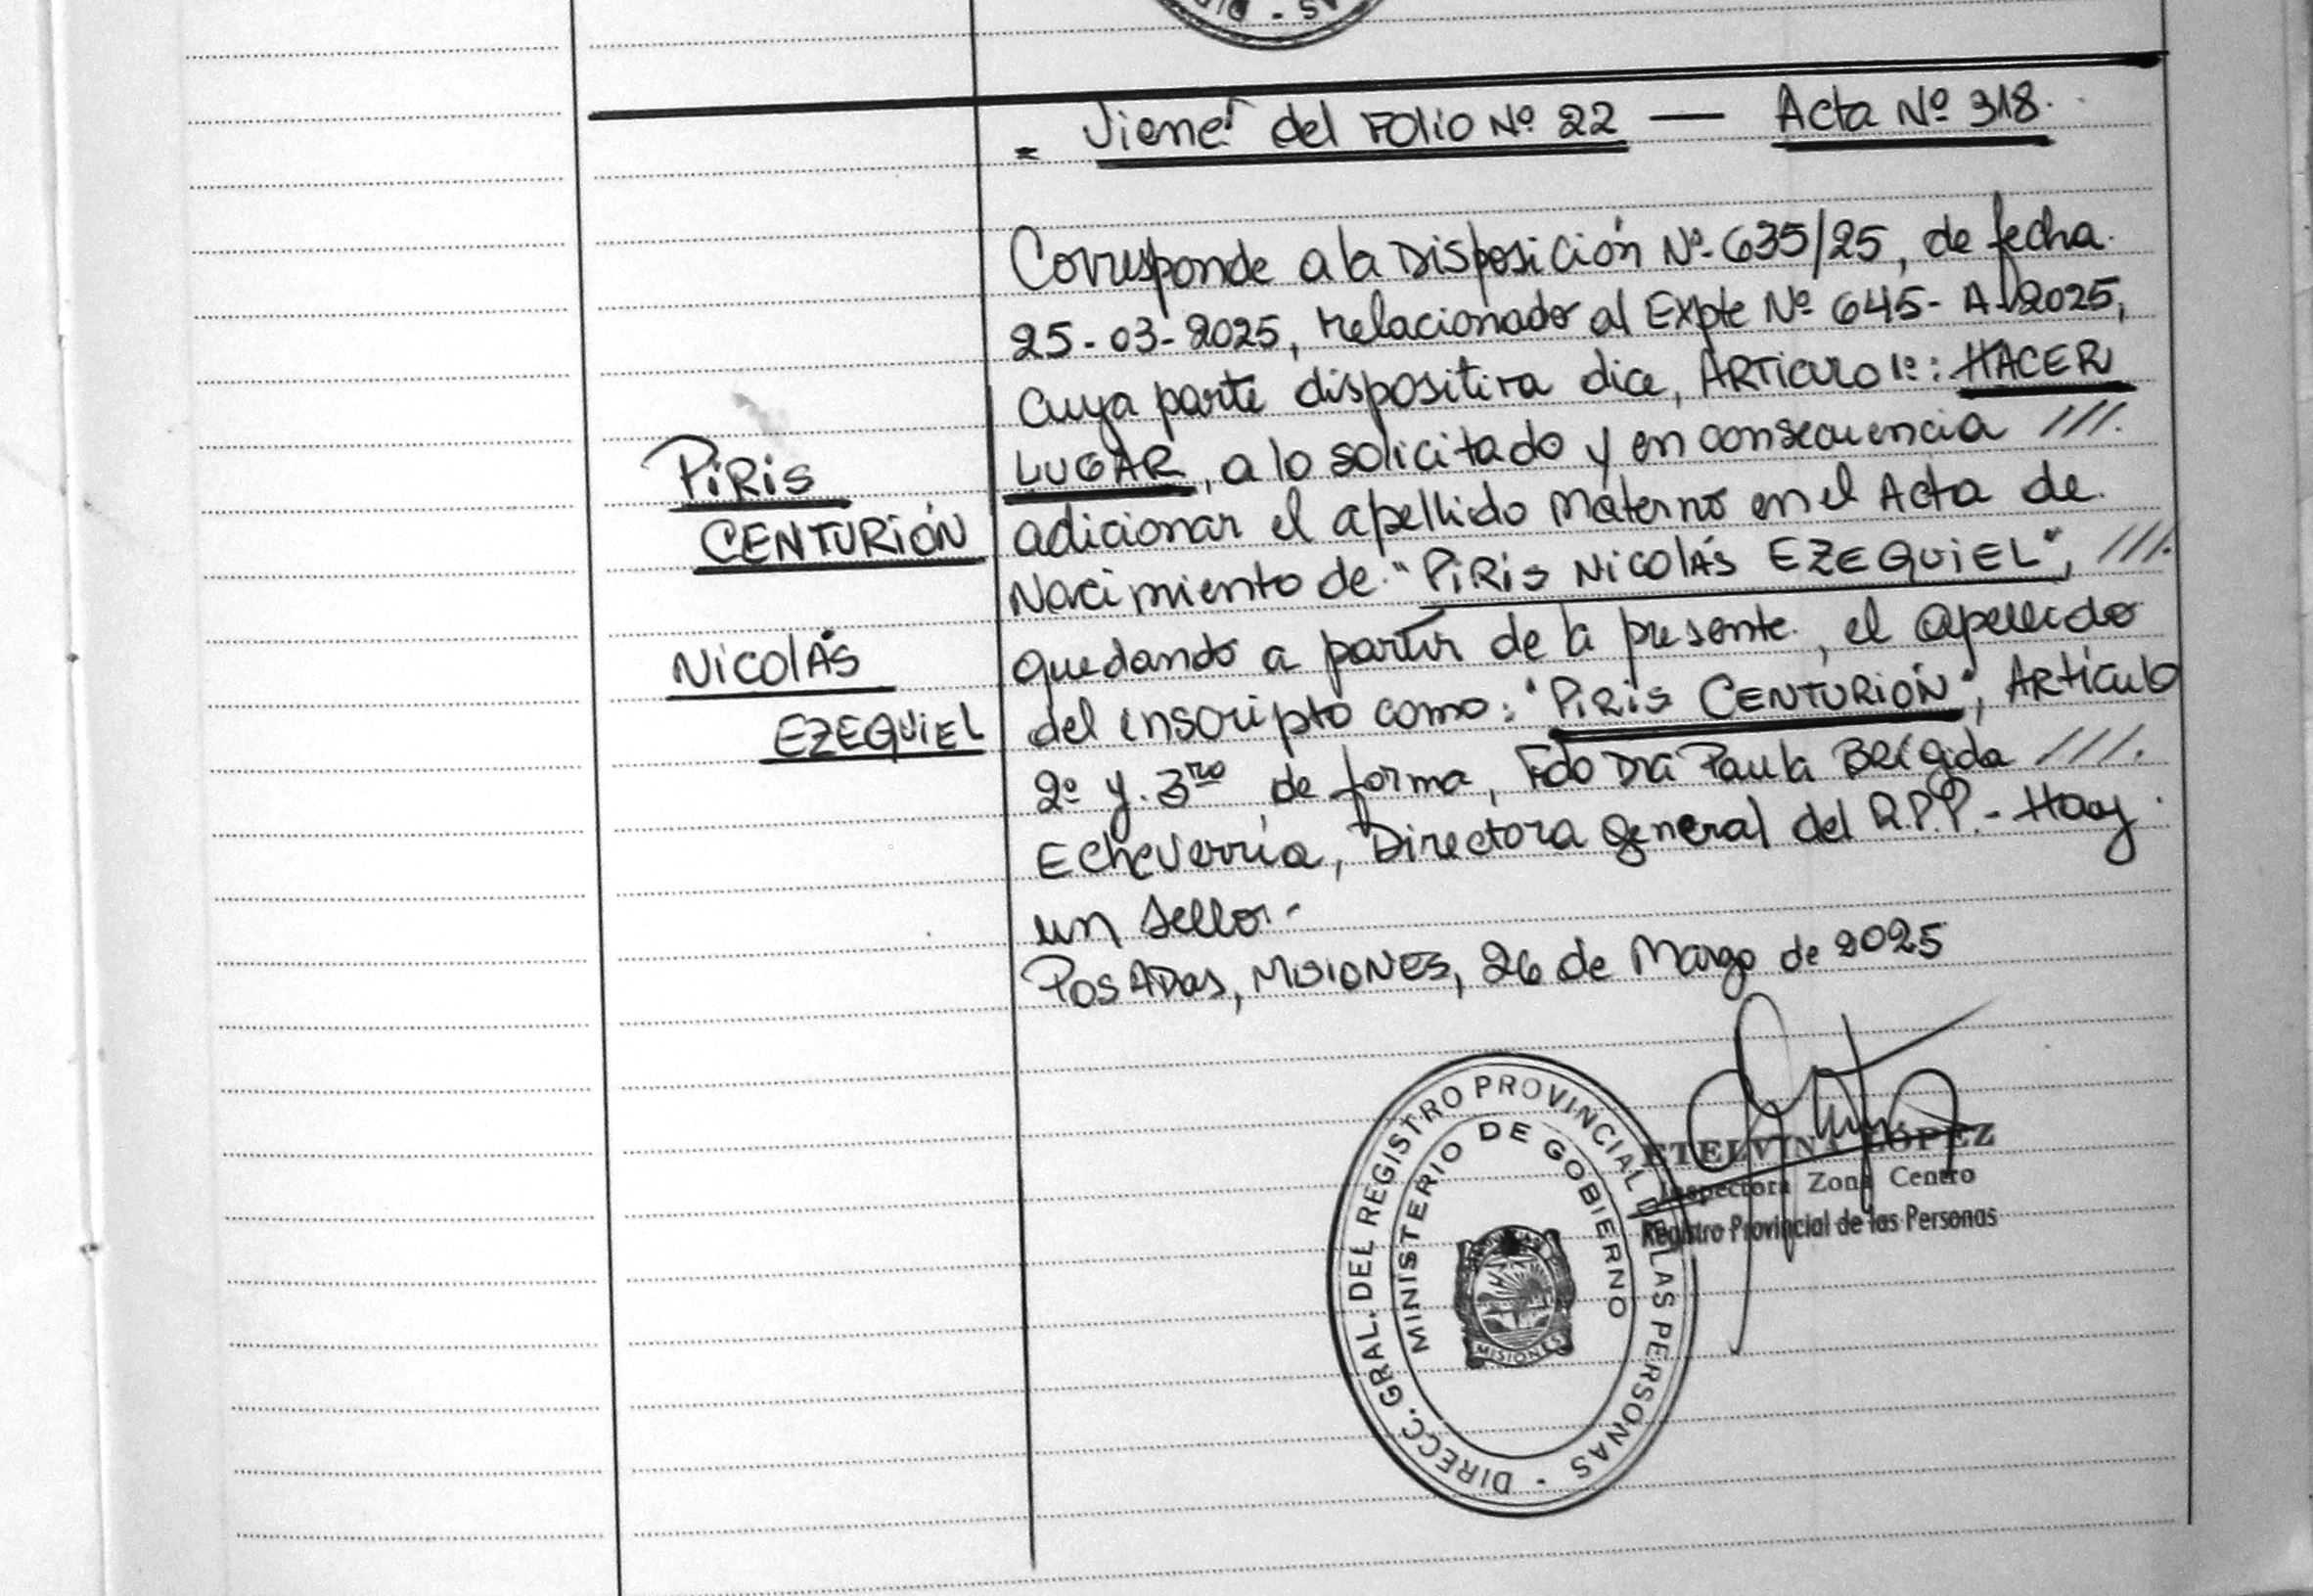 Viene del Folio Nº 22 — Acta Nº 318.
Corresponde a la Disposición Nº 635/25, de fecha
25-03-2025, relacionado al Expte Nº 645-A-2025,
cuya parte dispositiva dice, ARTICULO 1º: HACER
LUGAR, a lo solicitado y en consecuencia ///.
adicionar el apellido Materno en el Acta de
Nacimiento de "PIRIS NICOLÁS EZEQUIEL", ///.
quedando a partir de la presente, el apellido
del inscripto como: "PIRIS CENTURIÓN", Artículo
2º y 3ro de forma, Fdo Dra Paula Brígida ///.
Echeverría, Directora general del R.P.P.- Hay
un sello.-
Posadas, Misiones, 26 de Marzo de 2025
PIRIS
CENTURIÓN
NICOLÁS
EZEQUIEL
DIRECC. GRAL. DEL REGISTRO PROVINCIAL DE LAS PERSONAS
MINISTERIO DE GOBIERNO
MISIONES
ETELVINA LÓPEZ
Inspectora Zona Centro
Registro Provincial de las Personas